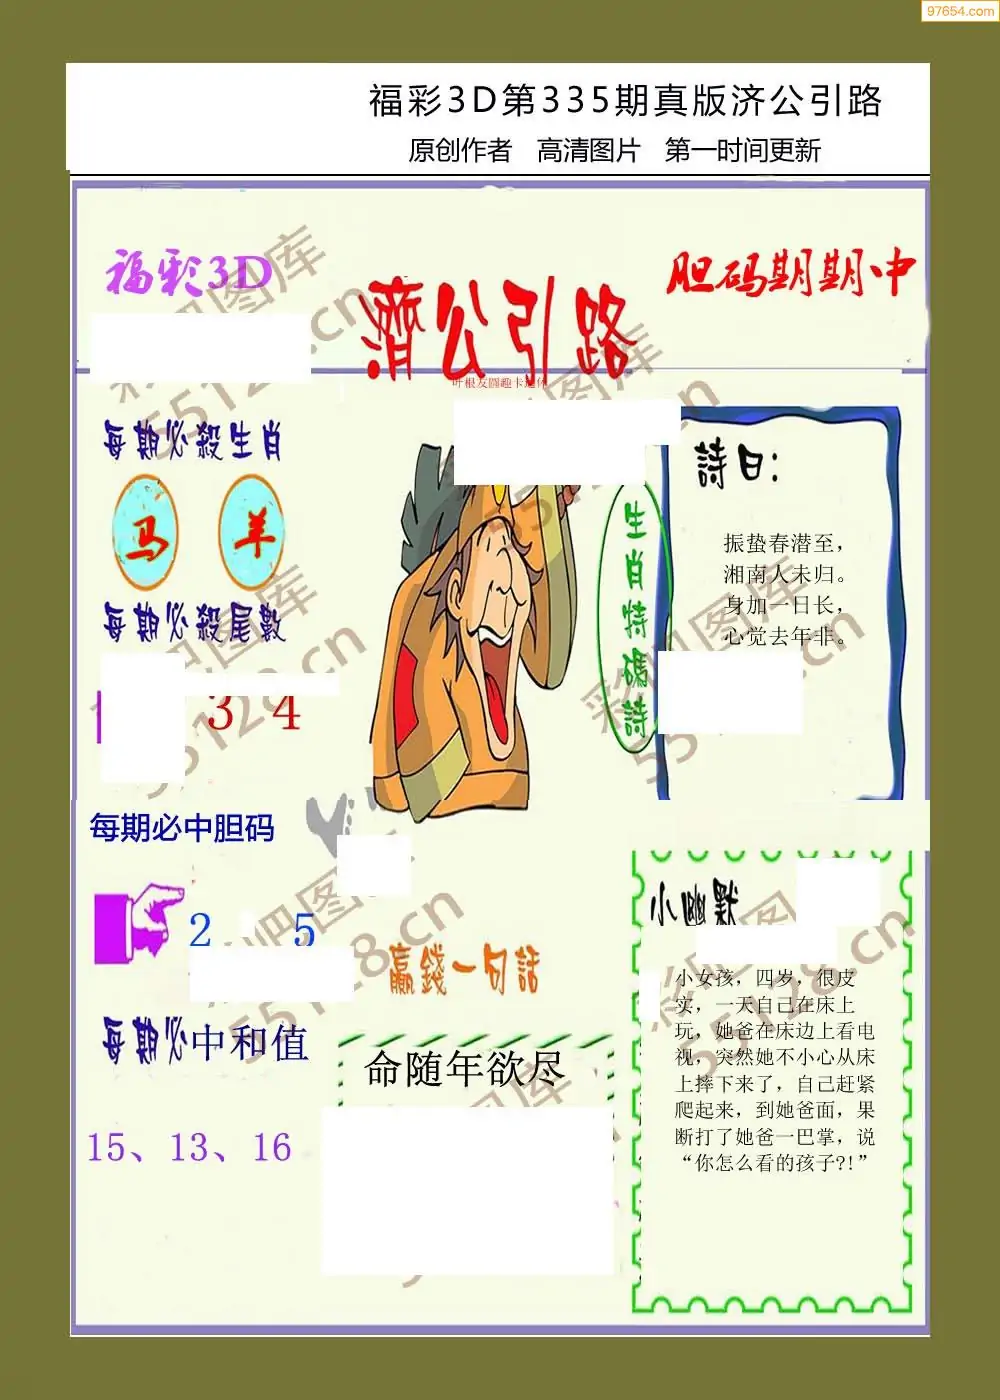 97654.com
福彩3D第335期真版济公引路
原创作者 高清图片 第一时间更新
福彩3D
濟公引路
胆码期期中
叶根友圆趣卡通体
每期必殺生肖
马 羊
每期必殺尾數
3 4
每期必中胆码
2 5
每期必中和值
15、13、16
生肖特碼詩
詩曰:
振蛰春潜至，
湘南人未归。
身加一日长，
心觉去年非。
赢錢一句話
命随年欲尽
小幽默
小女孩，四岁，很皮
实，一天自己在床上
玩，她爸在床边上看电
视，突然她不小心从床
上摔下来了，自己赶紧
爬起来，到她爸面，果
断打了她爸一巴掌，说
“你怎么看的孩子?!”
彩吧图库
55128.cn
彩吧图库
55128.cn
彩吧图库
55128.cn
彩吧图库
55128.cn
彩吧图库
55128.cn
彩吧图库
55128.cn